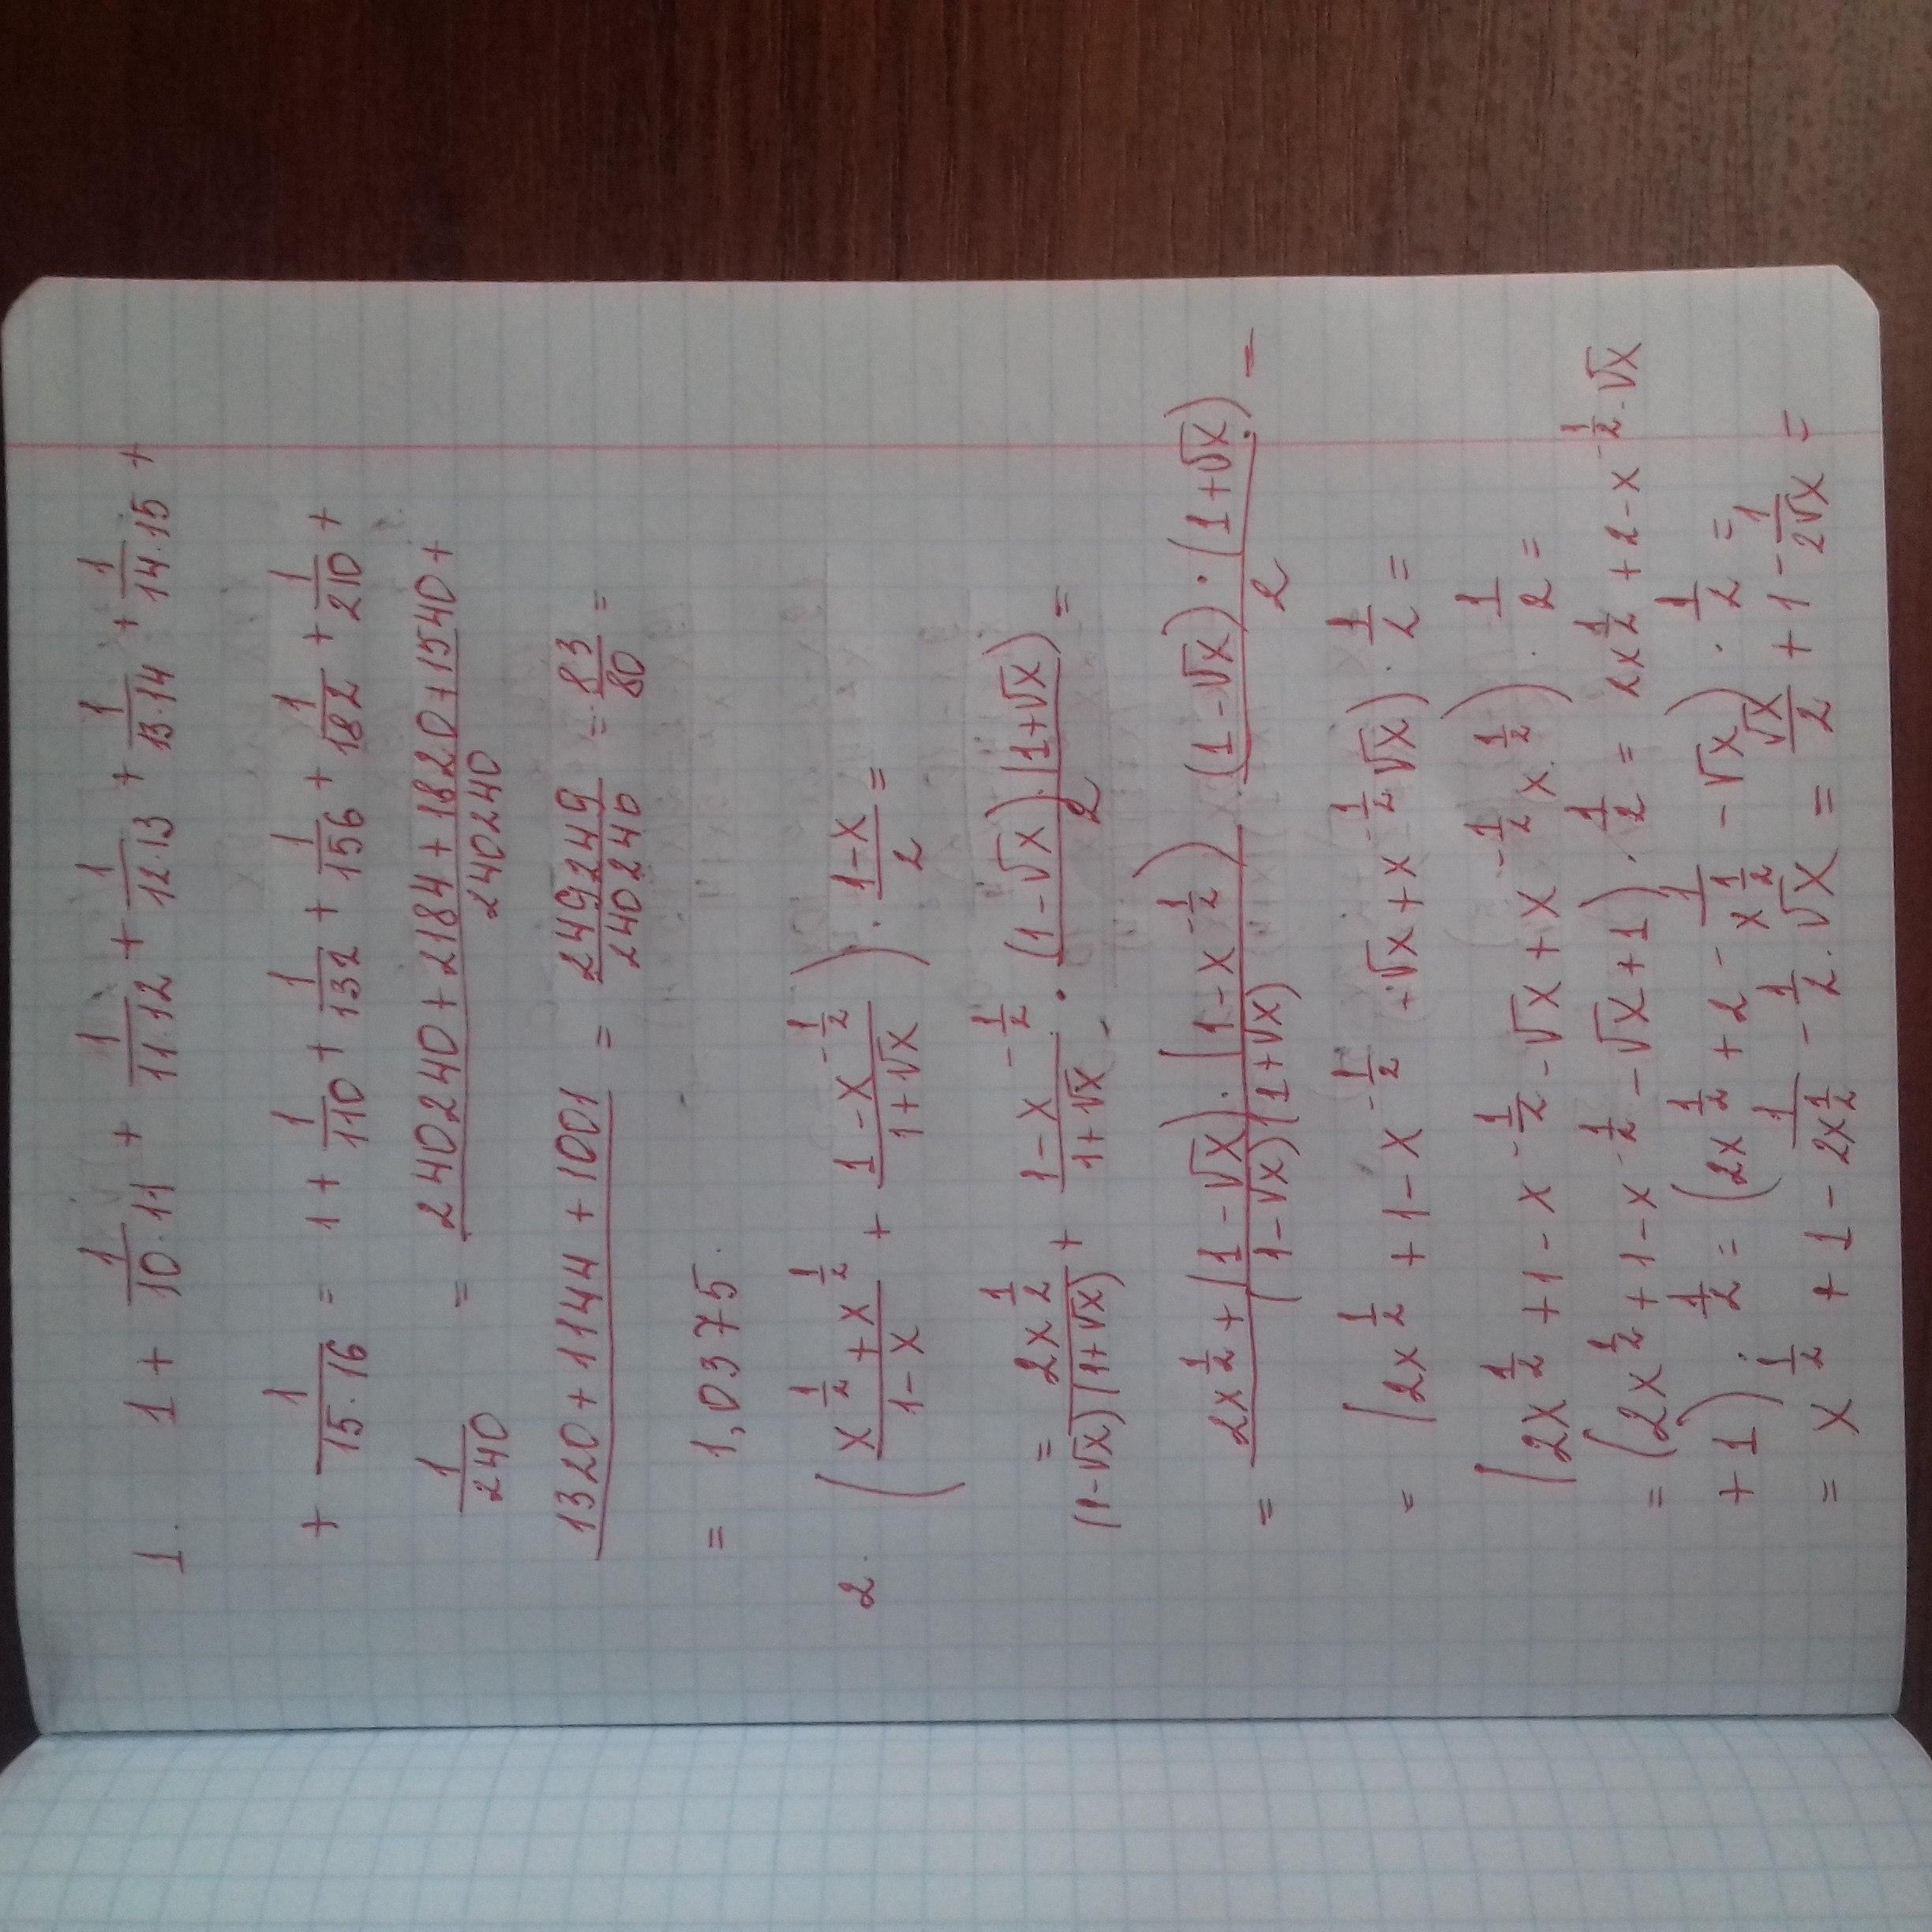 1. 1 + 1/(10·11) + 1/(11·12) + 1/(12·13) + 1/(13·14) + 1/(14·15) +
+ 1/(15·16) = 1 + 1/110 + 1/132 + 1/156 + 1/182 + 1/210 +
1/240 = (240240 + 2184 + 1820 + 1540 +)/240240
1320 + 1144 + 1001 = 249249/240240 = 83/80 =
= 1,0375.
2. ((x^(1/2) + x^(1/2))/(1-x) + (1-x^(-1/2))/(1+√x)) · (1-x)/2 =
= 2x^(1/2)/((1-√x)(1+√x)) + (1-x^(-1/2))/(1+√x) · ((1-√x)·(1+√x))/2 =
= (2x^(1/2) + (1-√x)·(1-x^(-1/2)))/((1-√x)(1+√x)) · ((1-√x)·(1+√x))/2 =
= (2x^(1/2) + 1 - x^(-1/2) + √x + x^(-1/2)√x) · 1/2 =
(2x^(1/2) + 1 - x^(-1/2) - √x + x^(-1/2) x^(1/2)) · 1/2 =
= (2x^(1/2) + 1 - x^(-1/2) - √x + 1) · 1/2 = 2x^(1/2) + 2 - x^(-1/2) - √x
+ 1) · 1/2 = (2x^(1/2) + 2 - 1/x^(1/2) - √x) · 1/2 =
= x^(1/2) + 1 - 1/(2x^(1/2)) - 1/2·√x = √x/2 + 1 - 1/(2√x) =